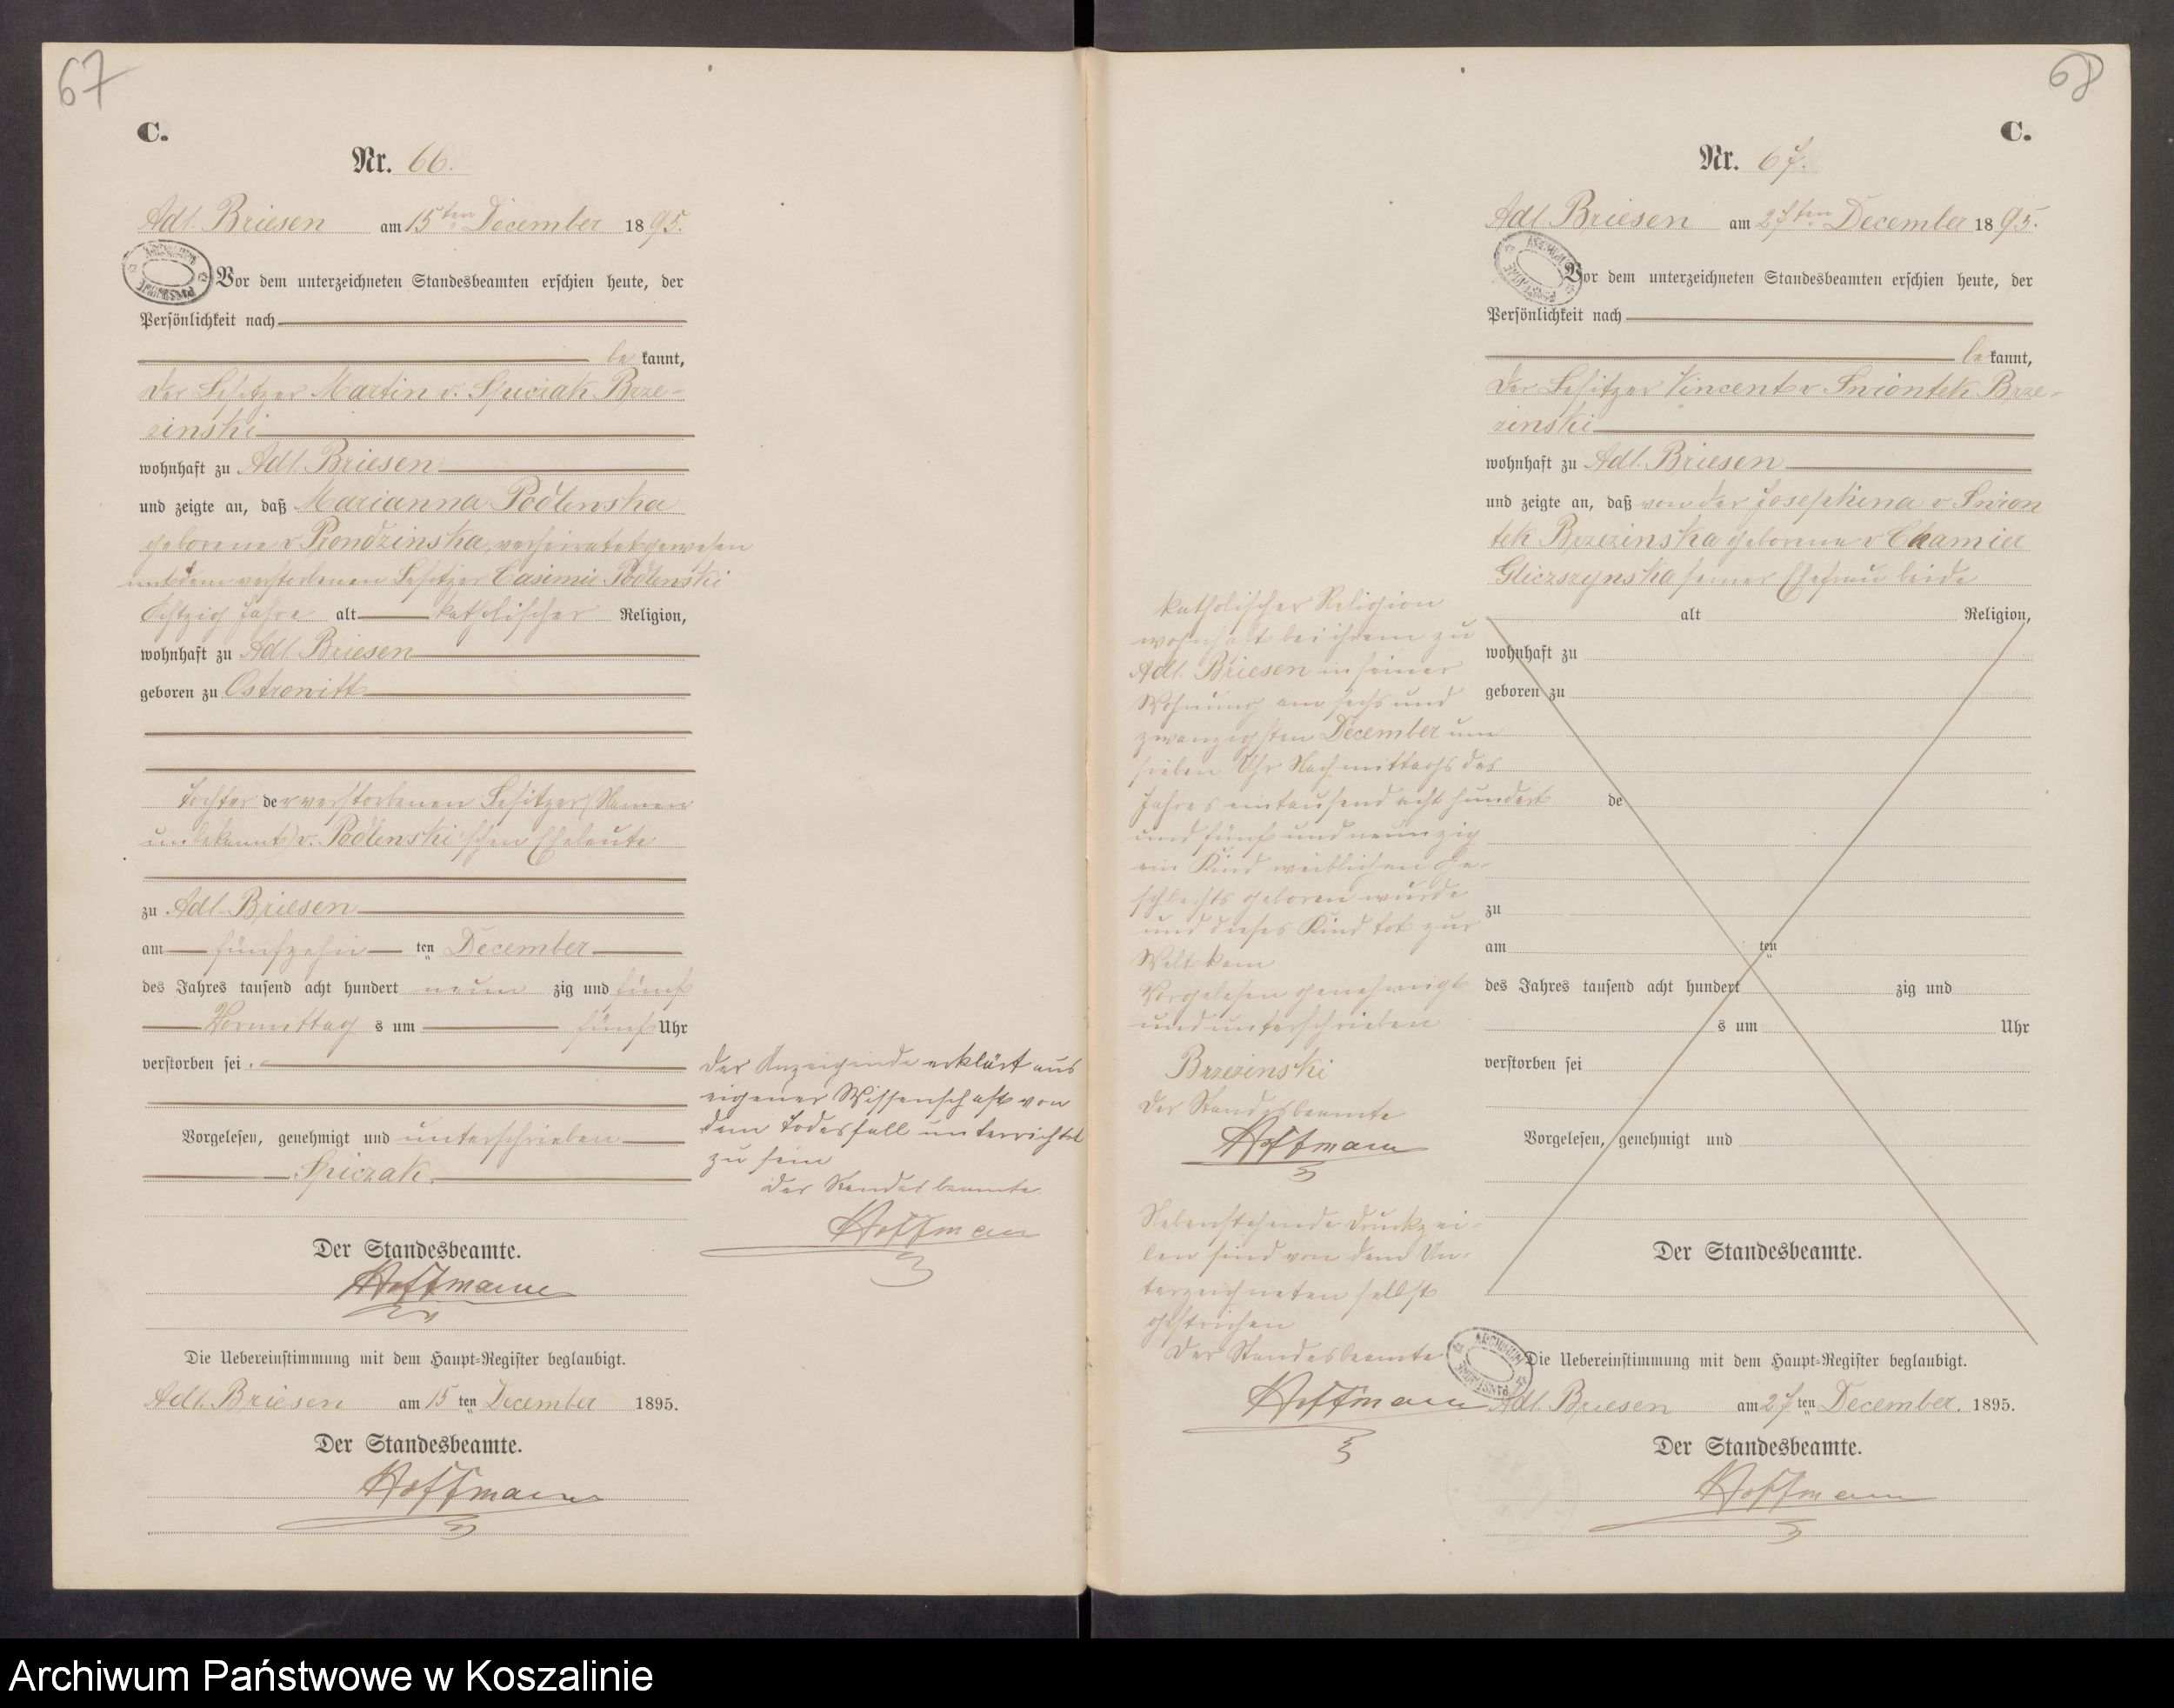 67
C.
Nr. 66.
Adl. Briesen am 15ten December 1895.
ARCHIWUM PAŃSTWOWE
Vor dem unterzeichneten Standesbeamten erschien heute, der
Persönlichkeit nach
bekannt,
der Besitzer Martin v. Spiczak Brze-
zinski
wohnhaft zu Adl. Briesen
und zeigte an, daß Marianna Podlenska
geborene v Prondzinska, verheiratet gewesen
mit dem verstorbenen Besitzer Casimir Podlenski
Achtzig Jahre alt katholischer Religion,
wohnhaft zu Adl. Briesen
geboren zu Ostrowitt
Tochter der verstorbenen Besitzer (Namen
unbekannt) v. Podlenski'schen Eheleute
zu Adl. Briesen
am fünfzehn ten December
des Jahres tausend acht hundert neun zig und fünf
Vormittag s um fünf Uhr
verstorben sei.
Vorgelesen, genehmigt und unterschrieben
Spiczak.
Der Standesbeamte.
Hoffmann
Die Uebereinstimmung mit dem Haupt-Register beglaubigt.
Adl. Briesen am 15 ten December 1895.
Der Standesbeamte.
Hoffmann
Der Anzeigende erklärt aus
eigener Wissenschaft von
dem Todesfall unterrichtet
zu sein
Der Standesbeamte
Hoffmann
68
C.
Nr. 67.
Adl. Briesen am 27ten December 1895.
ARCHIWUM PAŃSTWOWE
Vor dem unterzeichneten Standesbeamten erschien heute, der
Persönlichkeit nach
bekannt,
der Besitzer Vincent v Smiontek Brze-
zinski
wohnhaft zu Adl. Briesen
und zeigte an, daß von der Josephina v Smion
tek Brzezinska geborene v Chamier
Gliczszynska seiner Ehefrau beide
alt Religion,
wohnhaft zu
geboren zu
de
zu
am ten
des Jahres tausend acht hundert zig und
s um Uhr
verstorben sei
Vorgelesen, genehmigt und
Der Standesbeamte.
Die Uebereinstimmung mit dem Haupt-Register beglaubigt.
Adl. Briesen am 27 ten December. 1895.
Der Standesbeamte.
Hoffmann
katholischer Religion
wohnhaft bei ihrem zu
Adl. Briesen in seiner
Wohnung am sechs und
zwanzigsten December um
sieben Uhr Nachmittags des
Jahres eintausend acht hundert
und fünf und neunzig
ein Kind weiblichen Ge-
schlechts geboren wurde
und dieses Kind tot zur
Welt kam
Vorgelesen genehmigt
und unterschrieben
Brzezinski
Der Standesbeamte
Hoffmann
Nebenstehende Druckzei-
len sind von dem Un-
terzeichneten selbst
gestrichen
Der Standesbeamte
Hoffmann
ARCHIWUM PAŃSTWOWE
Archiwum Państwowe w Koszalinie